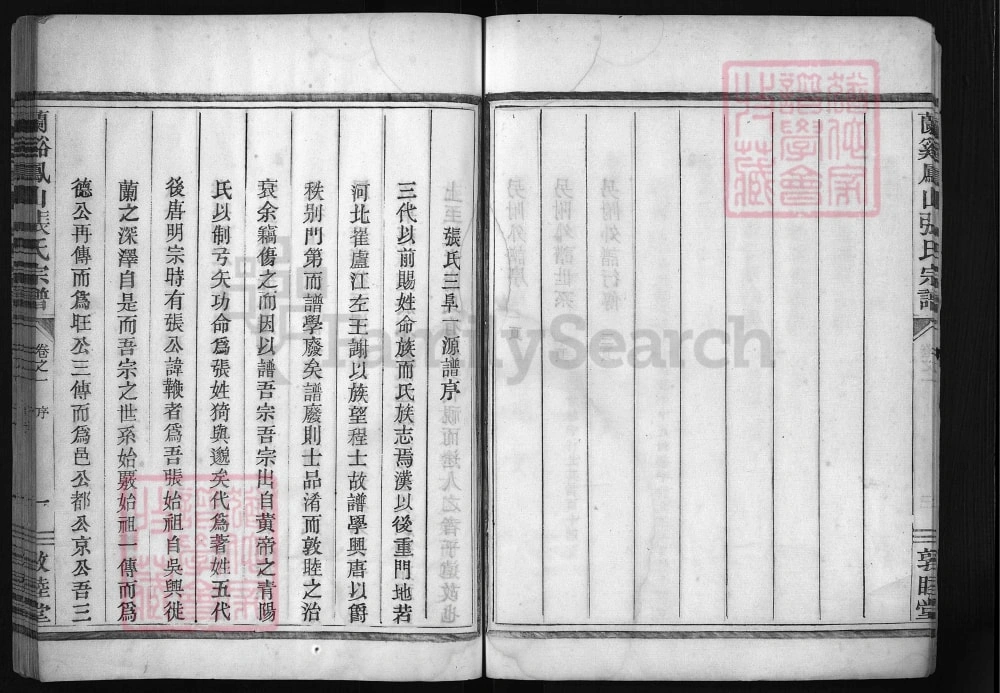 蘭谿鳳山張氏宗譜
敦睦堂
張氏三阜有源譜序
三代以前賜姓命族而氏族志焉漢以後重門地若
河北崔盧江左王謝以族望程士故譜學興唐以爵
秩別門第而譜學廢矣譜廢則士品淆而敦睦之治
衰余竊傷之而因以譜吾宗吾宗出自黃帝之青陽
氏以制弓矢功命爲張姓猗與邈矣代爲著姓五代
後唐明宗時有張公諱鞭者爲吾張始祖自吳興徙
蘭之深澤自是而吾宗之世系始覈始祖一傳而爲
德公再傳而爲旺公三傳而爲邑公都公京公吾三
蘭谿鳳山張氏宗譜
卷之一
序
一
敦睦堂
FamilySearch